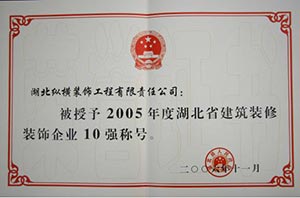 湖北纵横装饰工程有限责任公司：
被授予2005年度湖北省建筑装修
装饰企业10强称号。
二〇〇六年十一月